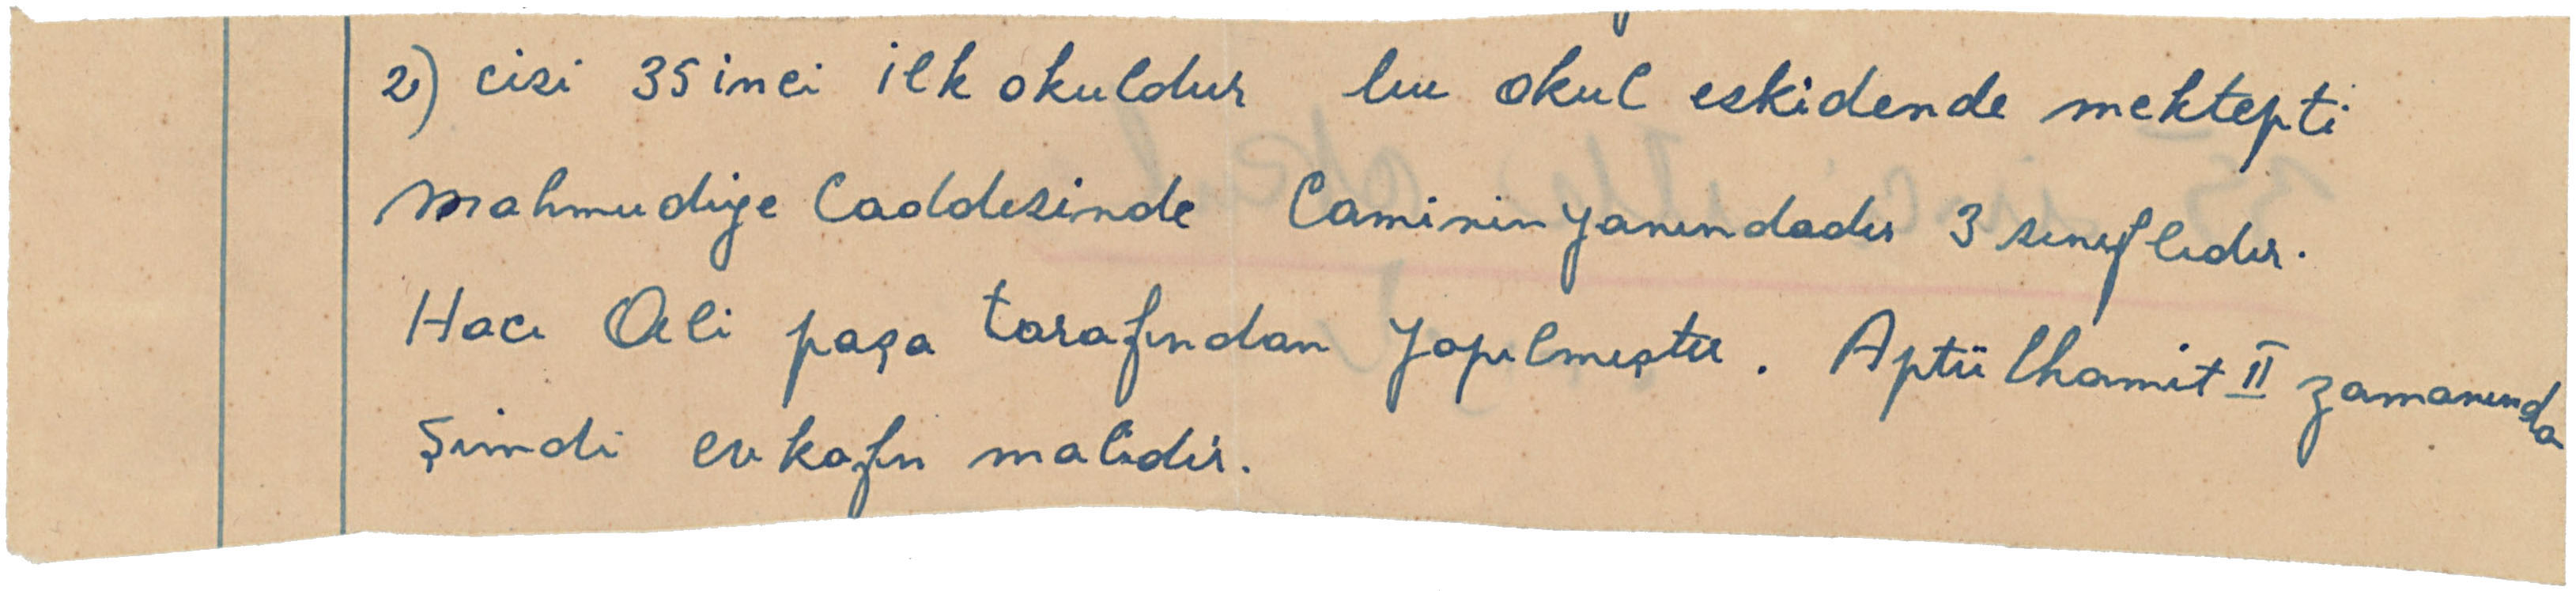 2) cisi 35 inci ilk okuldur bu okul eskidende mektepti
Mahmudiye Caddesinde Caminin yanındadır 3 sınıflıdır.
Hacı Ali paşa tarafından yapılmıştır. Aptülhamit II zamanında
Şimdi evkafın malıdır.